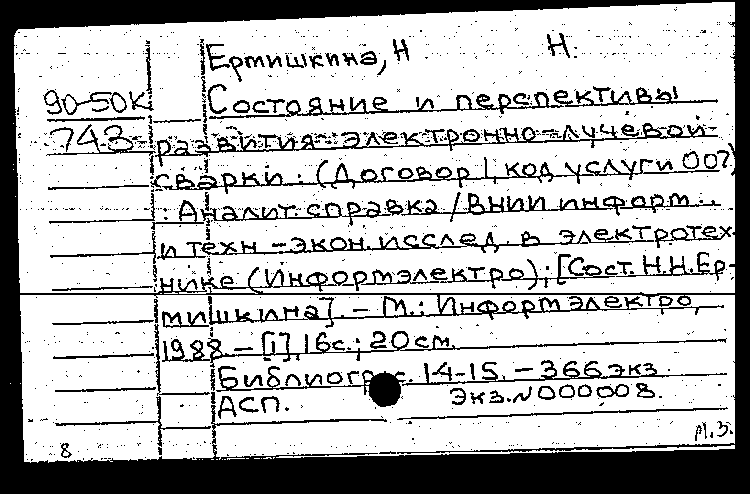 Ермишкина, Н Н.
90-50К Состояние и перспективы
743 развития электронно-лучевой
сварки : (Договор 1, код услуги 007)
: Аналит. справка / ВНИИ информ.
и техн.-экон. исслед. в электротех-
нике (Информэлектро) ; [Сост. Н.Н.Ер-
мишкина]. - М. : Информэлектро,
1988. - [1], 16с. ; 20см.
Библиогр.: с. 14-15. - 366 экз.
АСП. Экз.N000008.
8 М.З.